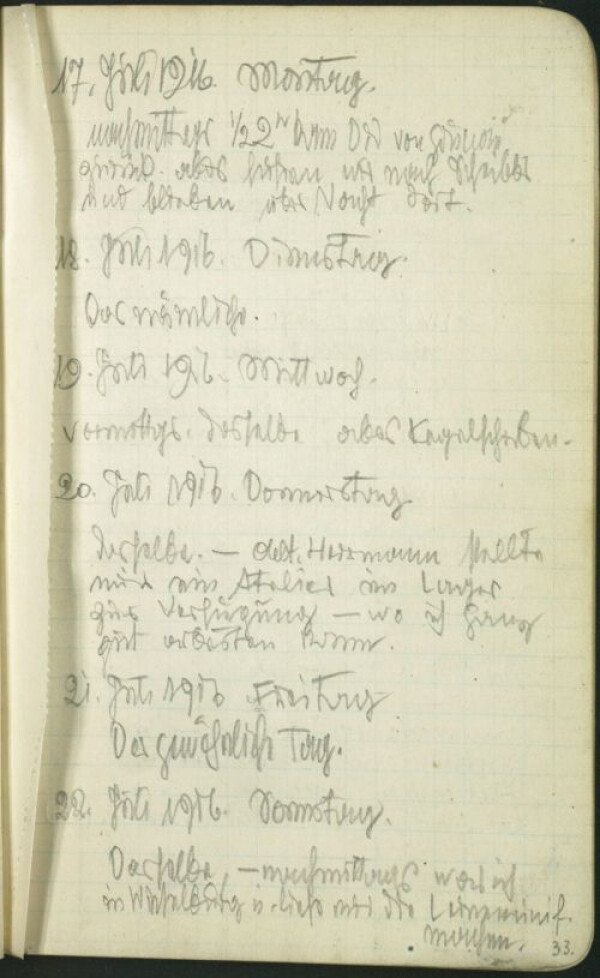 17. Juli 1916. Montag.
nachmittags 1/2 2 h kam Edi von
zurück. abds fuhren wir nach Scheibbs
und blieben über Nacht dort.
18. Juli 1916. Dienstag.
Das nämliche.
19. Juli 1916. Mittwoch.
vormittgs. dasselbe abds Kegelscheiben.
20. Juli 1916. Donnerstag
Dasselbe. — Oblt. Herrmann stellte
mir ein Atelier im Lager
zur Verfügung — wo ich ganz
gut arbeiten kann.
21. Juli 1916 Freitag
Der gewöhnliche Tag.
22. Juli 1916. Samstag.
Dasselbe, — nachmittags war ich
in Wieselburg u. ließ mir die
machen.
33.